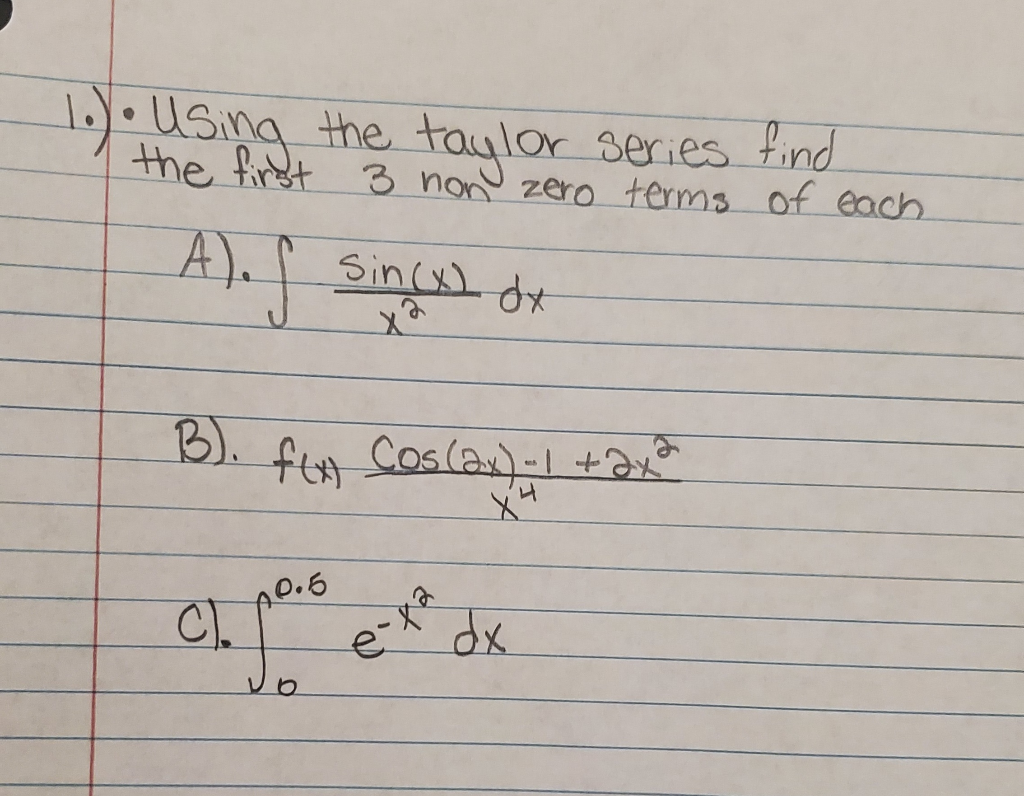 1.) • Using the taylor series find
the first 3 non zero terms of each
A). ∫ sin(x)/x² dx
B). f(x) cos(2x)-1 +2x²/x⁴
C). ∫₀^0.5 e^-x² dx